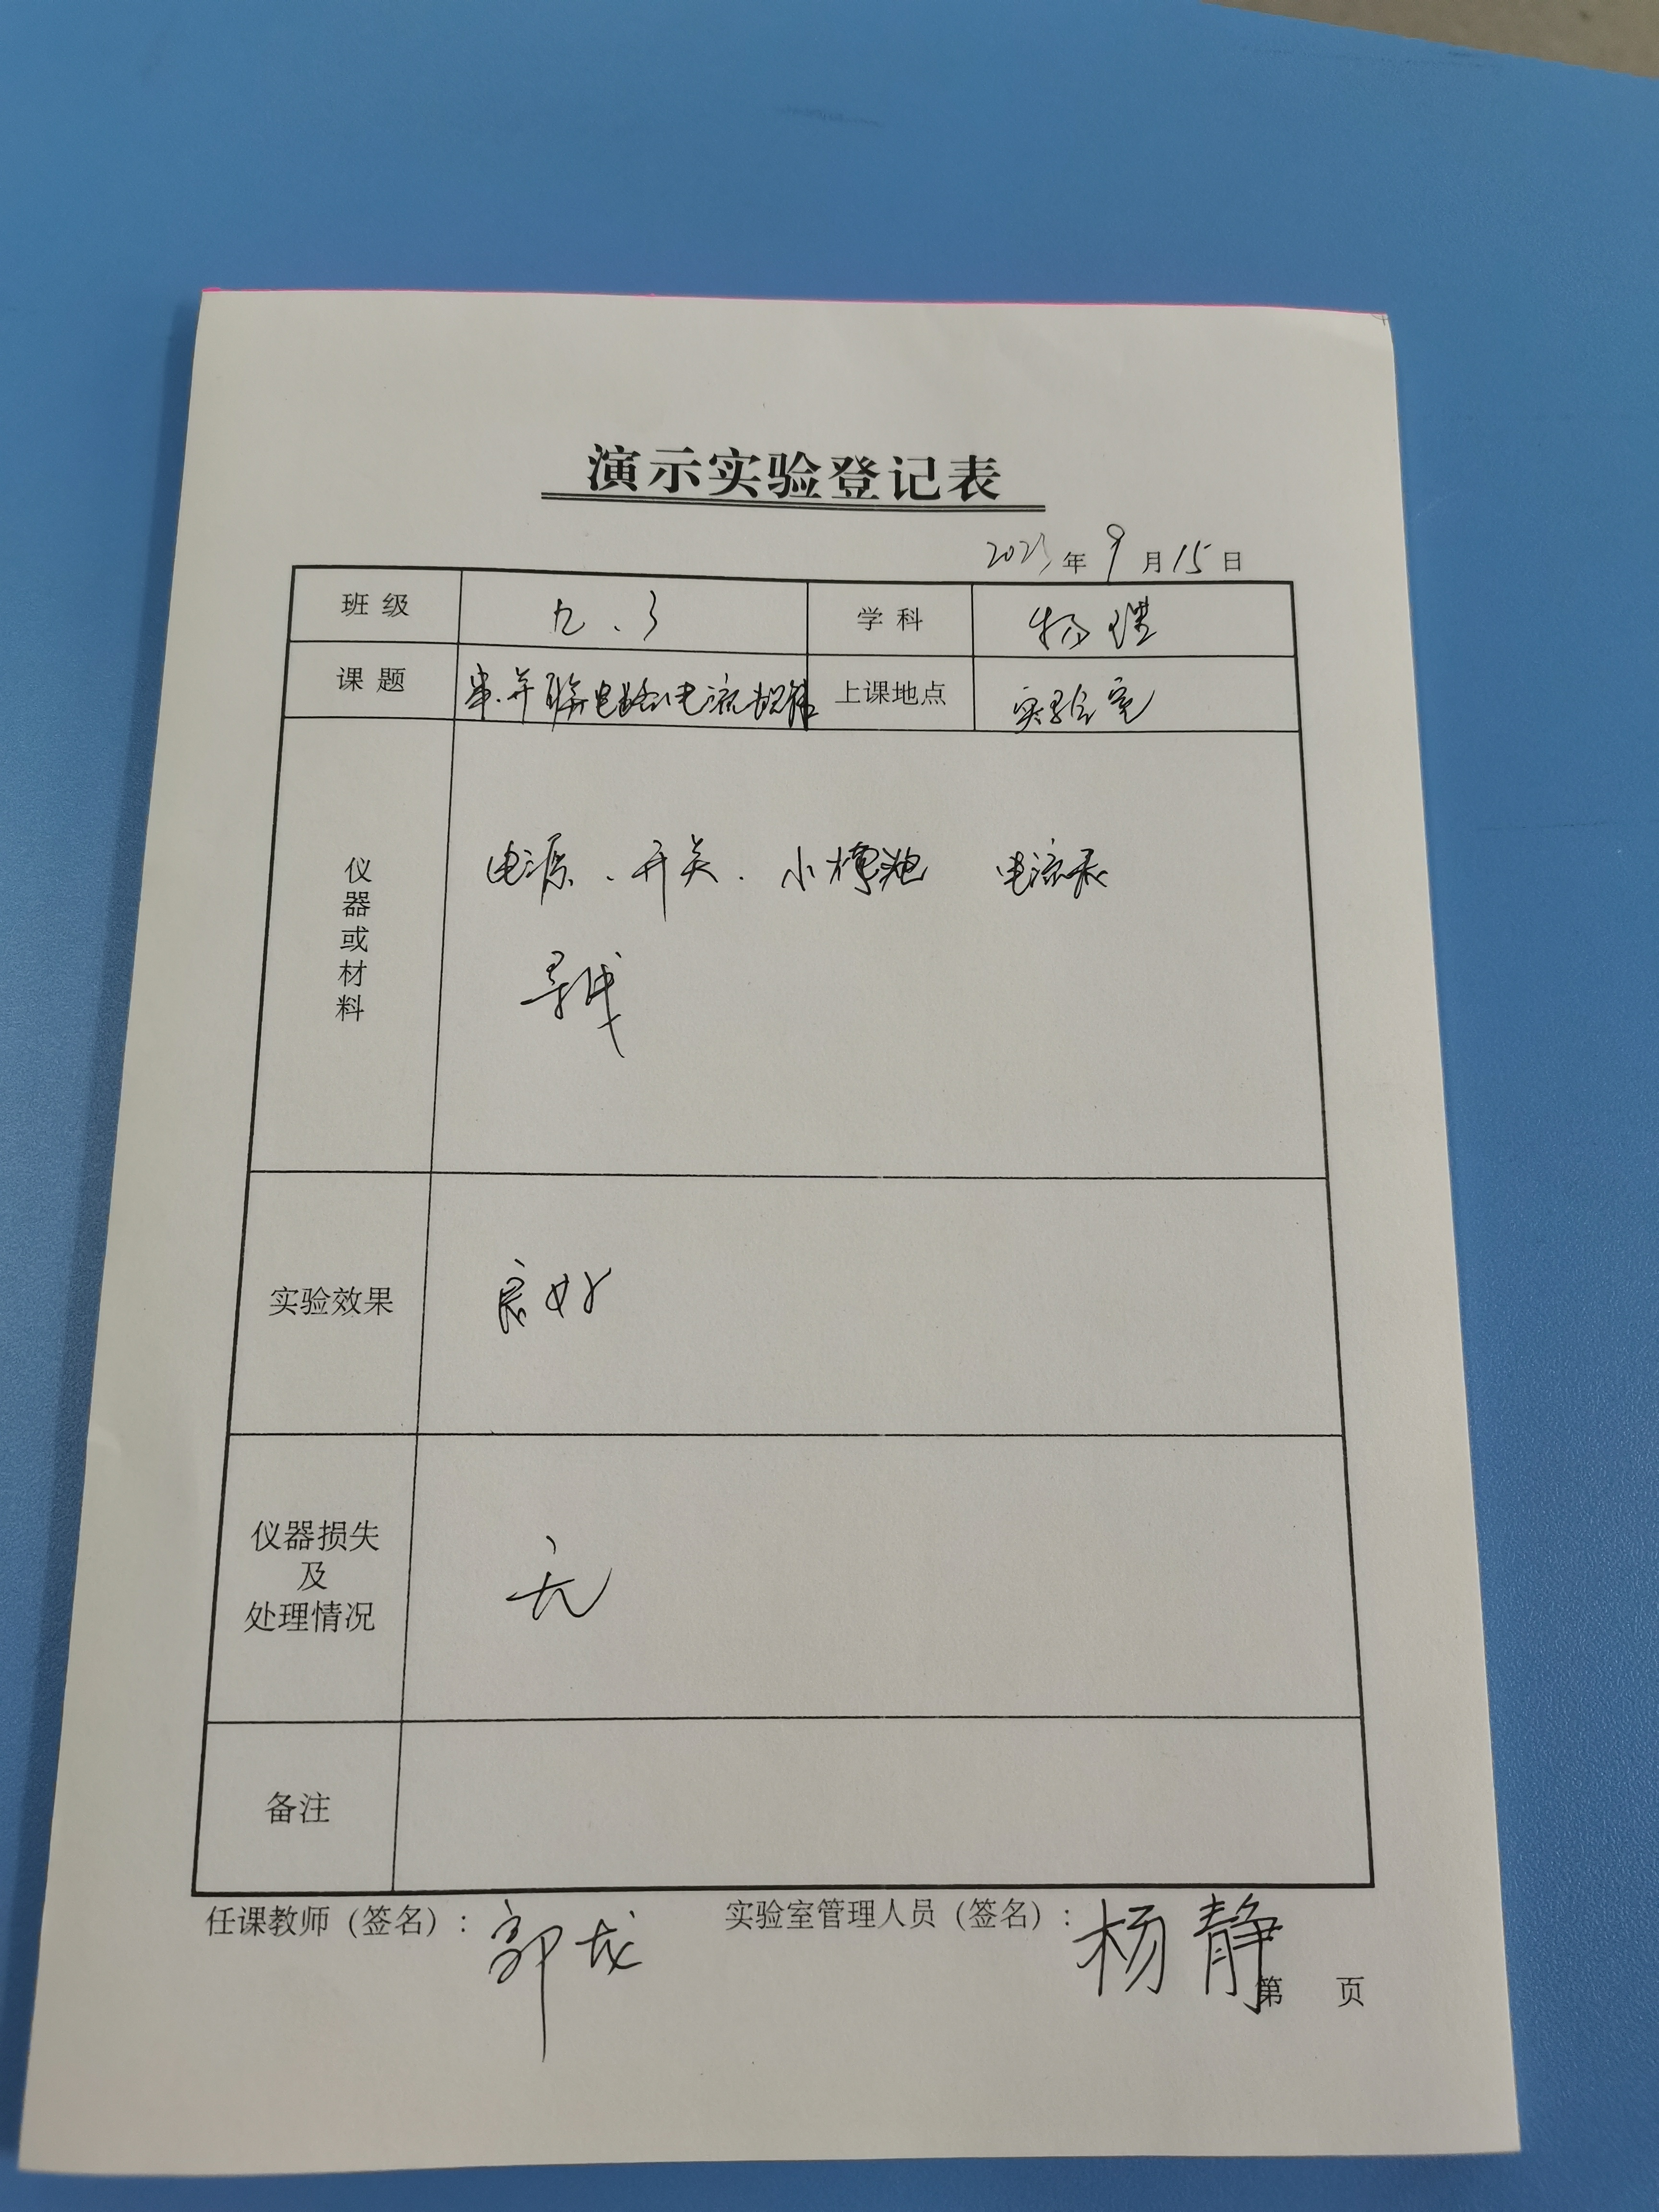 演示实验登记表
2023年9月15日
班级 九.3 学科 物理
课题 串.并联电路电流规律 上课地点 实验室
仪器或材料
电源、开关.小 电流表
导线
实验效果 良好
仪器损失
及
处理情况
无
备注
任课教师（签名）：郭龙 实验室管理人员（签名）：杨静
第 页